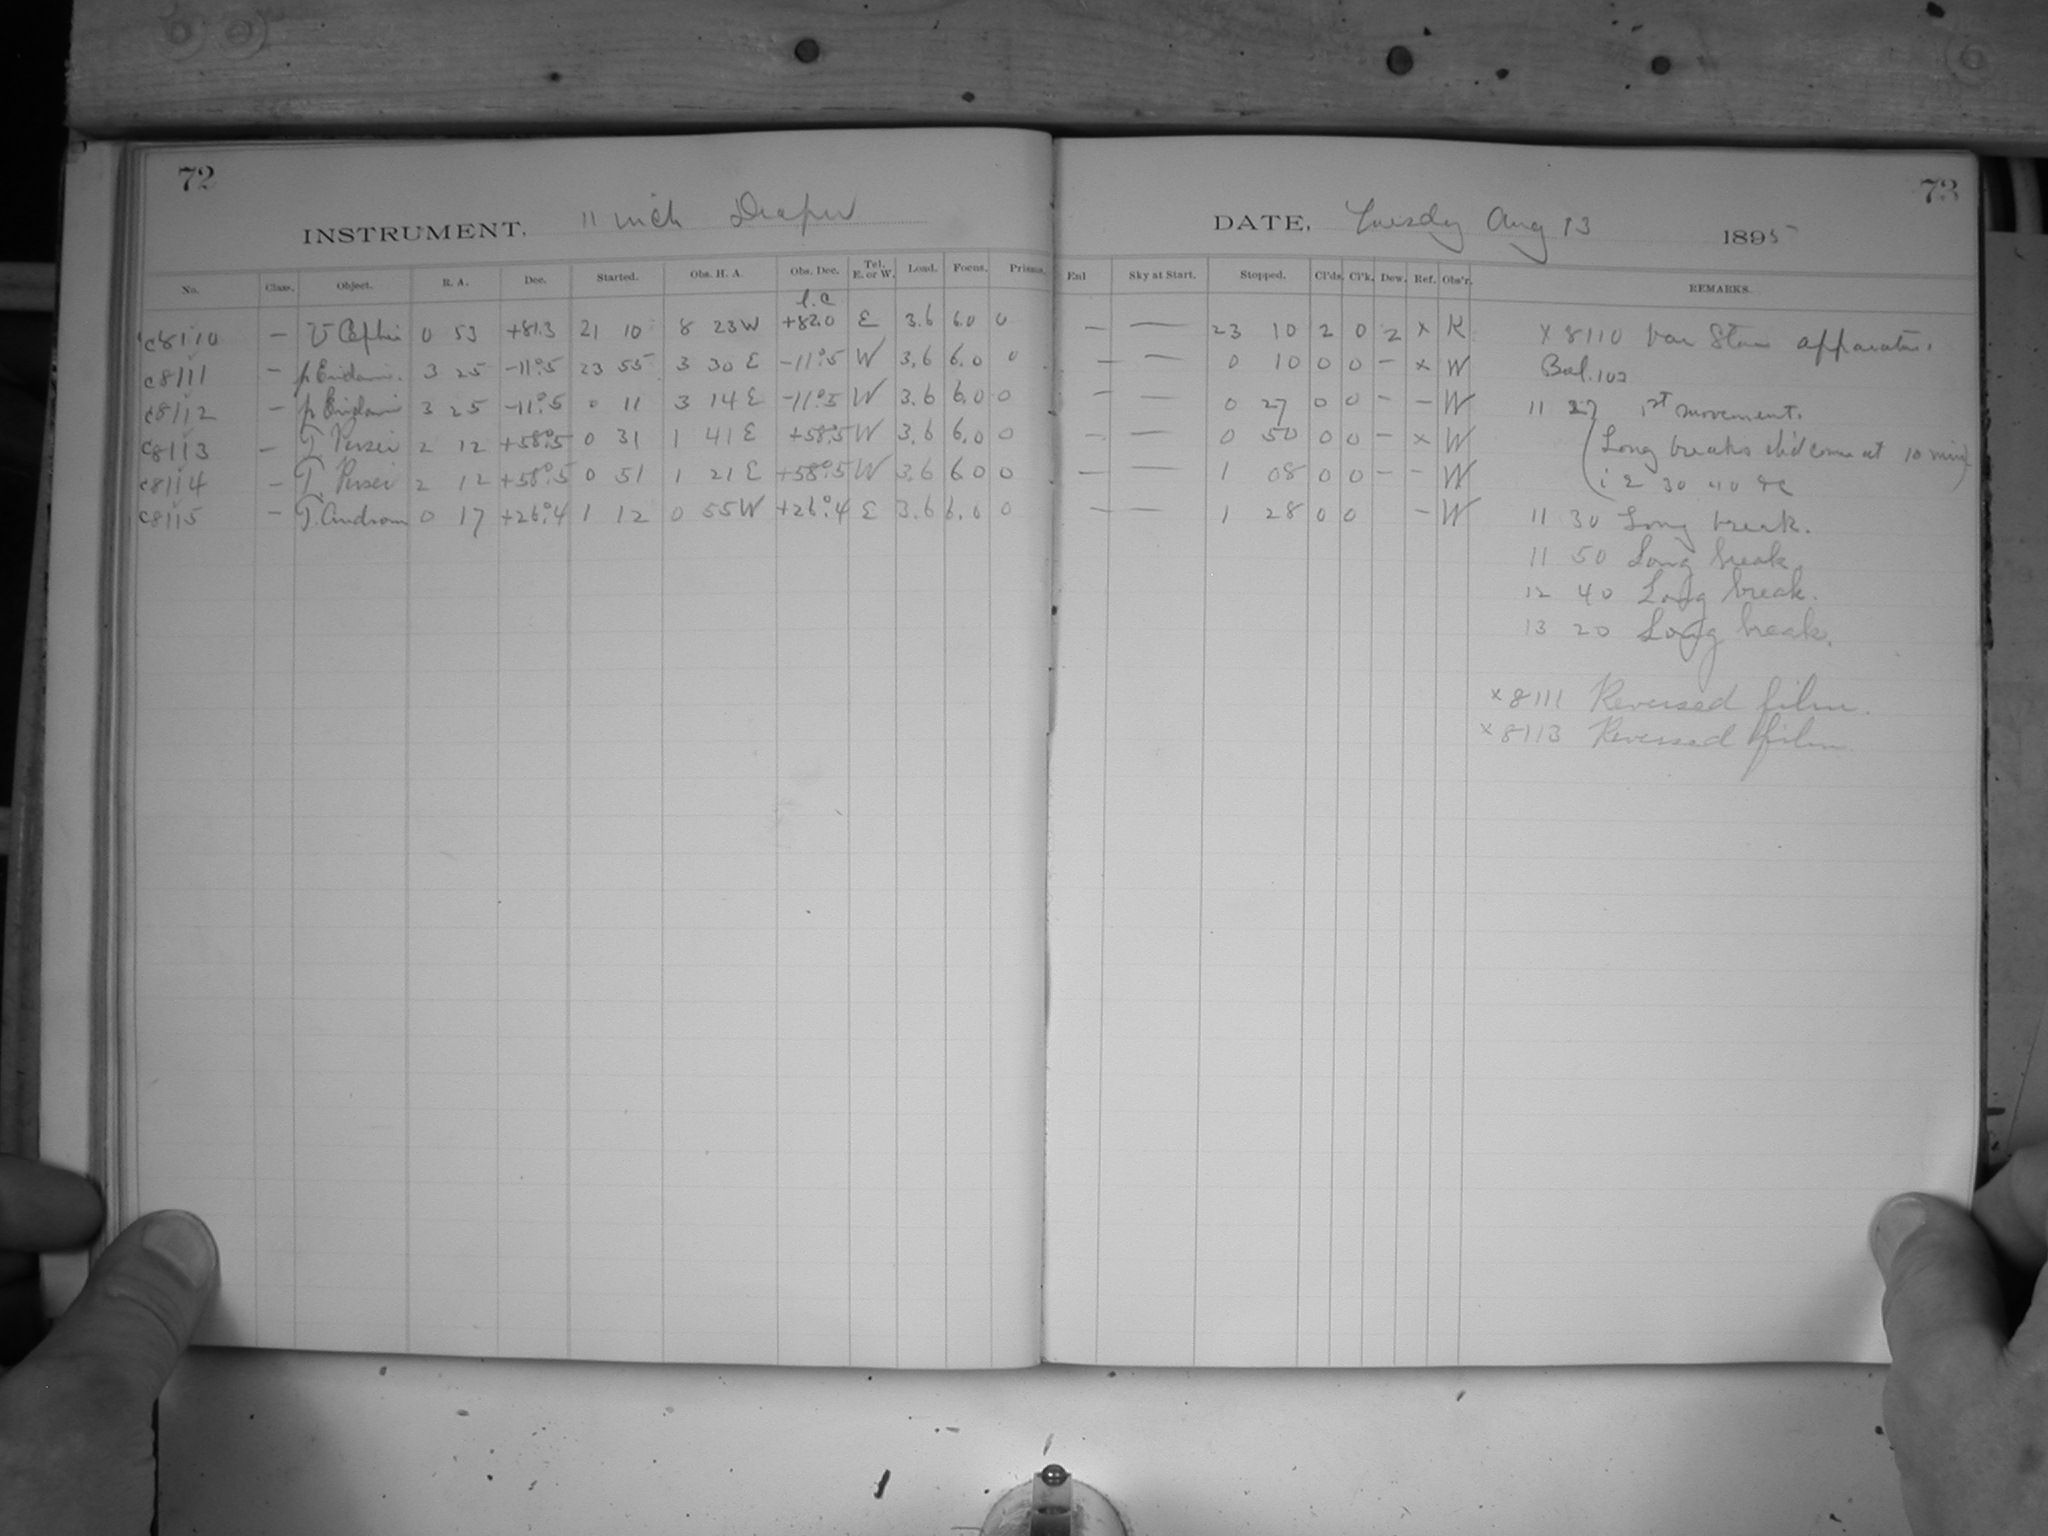 72
INSTRUMENT. 11 inch Draper
No. Class. Object. R. A. Dec. Started. Obs. H. A. Obs. Dec. Tel. E. or W. Load. Focus. Prisms.
c8110 — U Cephei 0 53 +81.3 21 10 8 23 W l.c +82.0 E 3.6 6.0 0
c8111 — p Eridani. 3 25 -11°.5 23 55 3 30 E -11°.5 W 3.6 6.0 0
c8112 — p Eridani 3 25 -11°.5 0 11 3 14 E -11°.5 W 3.6 6.0 0
c8113 — T. Persei 2 12 +58°.5 0 31 1 41 E +58°.5 W 3.6 6.0 0
c8114 — T. Persei 2 12 +58°.5 0 51 1 21 E +58°.5 W 3.6 6.0 0
c8115 — T. Androm 0 17 +26°.4 1 12 0 55 W +26°.4 E 3.6 6.0 0
73
DATE, Tuesday Aug 13 1895
Enl Sky at Start. Stopped. Cl'ds. Cl'k. Dew. Ref. Obs'r. REMARKS.
— — 23 10 2 0 2 x K x 8110 Var Star apparatus.
— — 0 10 0 0 – x W Bal. 102
— — 0 27 0 0 – – W 11 27 1st movement.
— — 0 50 0 0 – x W (Long breaks did come at 10 min
— — 1 08 0 0 – – W 30 40 &c)
— — 1 28 0 0 – W 11 30 Long break.
11 50 Long break.
12 40 Long break.
13 20 Long break.
x 8111 Reversed film.
x 8113 Reversed film